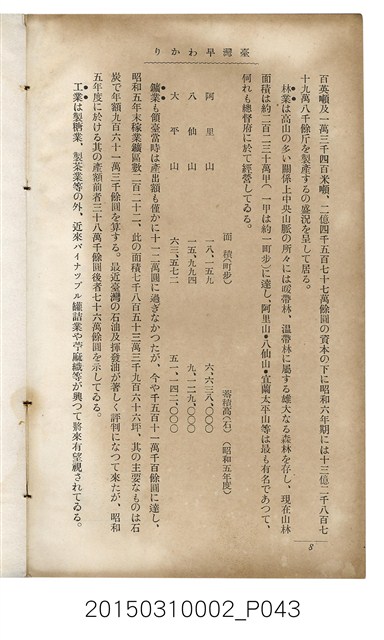 臺灣早わかり
百英噸及一萬三千四百米噸、二億四千五百七十七萬餘圓の資本の下に昭和六年期には十三億二千八百七
十九萬八千餘斤を製產するの盛況を呈して居る。
林業は高山の多い關係上中央山脈の所々には暖帶林、溫帶林に屬する雄大なる森林を存し、現在山林
面積は約二百二三十萬甲(一甲は約一町步)に達し、阿里山・八仙山・宜蘭太平山等は最も有名であつて、
何れも總督府に於て經營してゐる。
面積(町步) 蓄積高(石)(昭和五年度)
阿里山 一八、一五九 六、六三八、〇〇〇
八仙山 一五、九九四 九、一二九、〇〇〇
大平山 六三、五七二 五一、一四二、〇〇〇
鑛業も領臺當時は產出額も僅かに十一二萬圓に過ぎなかつたが、今や千五百十一萬千百餘圓に達し、
昭和五年末稼業鑛區數二百二十二、此の面積七千八百五十三萬三千九百六十六坪、其の主要なものは石
炭で年額九百六十一萬三千餘圓を算する。最近臺灣の石油及揮發油が著しく評判になつて來たが、昭和
五年度に於ける其の產額前者三十八萬千餘圓後者七十六萬餘圓を示してゐる。
工業は製糖業、製茶業等の外、近來パイナップル罐詰業や苧麻織等が興つて將來有望視されてゐる。
8
20150310002_P043